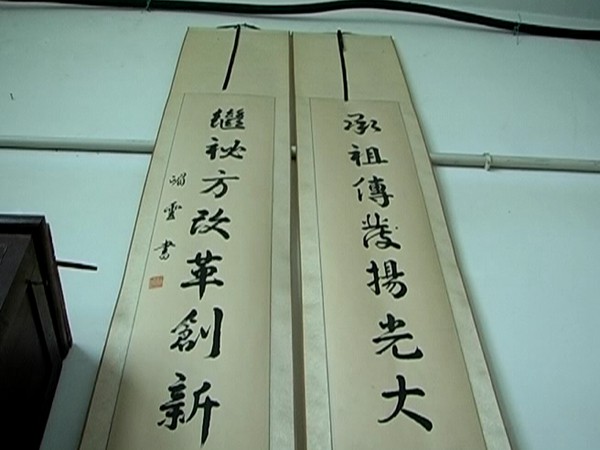 承祖傳發揚光大
繼秘方改革創新
雲書